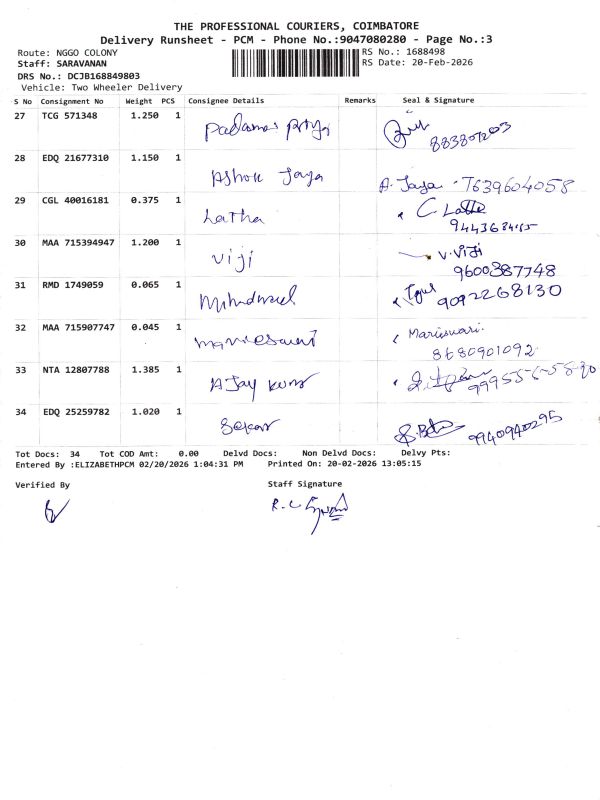 THE PROFESSIONAL COURIERS, COIMBATORE
Delivery Runsheet - PCM - Phone No.:9047080280 - Page No.:3
Route: NGGO COLONY
RS No.: 1688498
Staff: SARAVANAN
RS Date: 20-Feb-2026
DRS No.: DCJB168849803
Vehicle: Two Wheeler Delivery
S No Consignment No Weight PCS Consignee Details Remarks Seal & Signature
27 TCG 571348 1.250 1
28 EDQ 21677310 1.150 1 Ashok Jaya A. Jaya. 7639604058
29 CGL 40016181 0.375 1 Latha C. Latha
30 MAA 715394947 1.200 1 viji V. Viji
9600387748
31 RMD 1749059 0.065 1
9092268130
32 MAA 715907747 0.045 1 Mariswari.
8680901092
33 NTA 12807788 1.385 1 AJay kumar
34 EDQ 25259782 1.020 1 Sekar 9940940295
Tot Docs: 34 Tot COD Amt: 0.00 Delvd Docs: Non Delvd Docs: Delvy Pts:
Entered By :ELIZABETHPCM 02/20/2026 1:04:31 PM Printed On: 20-02-2026 13:05:15
Verified By Staff Signature